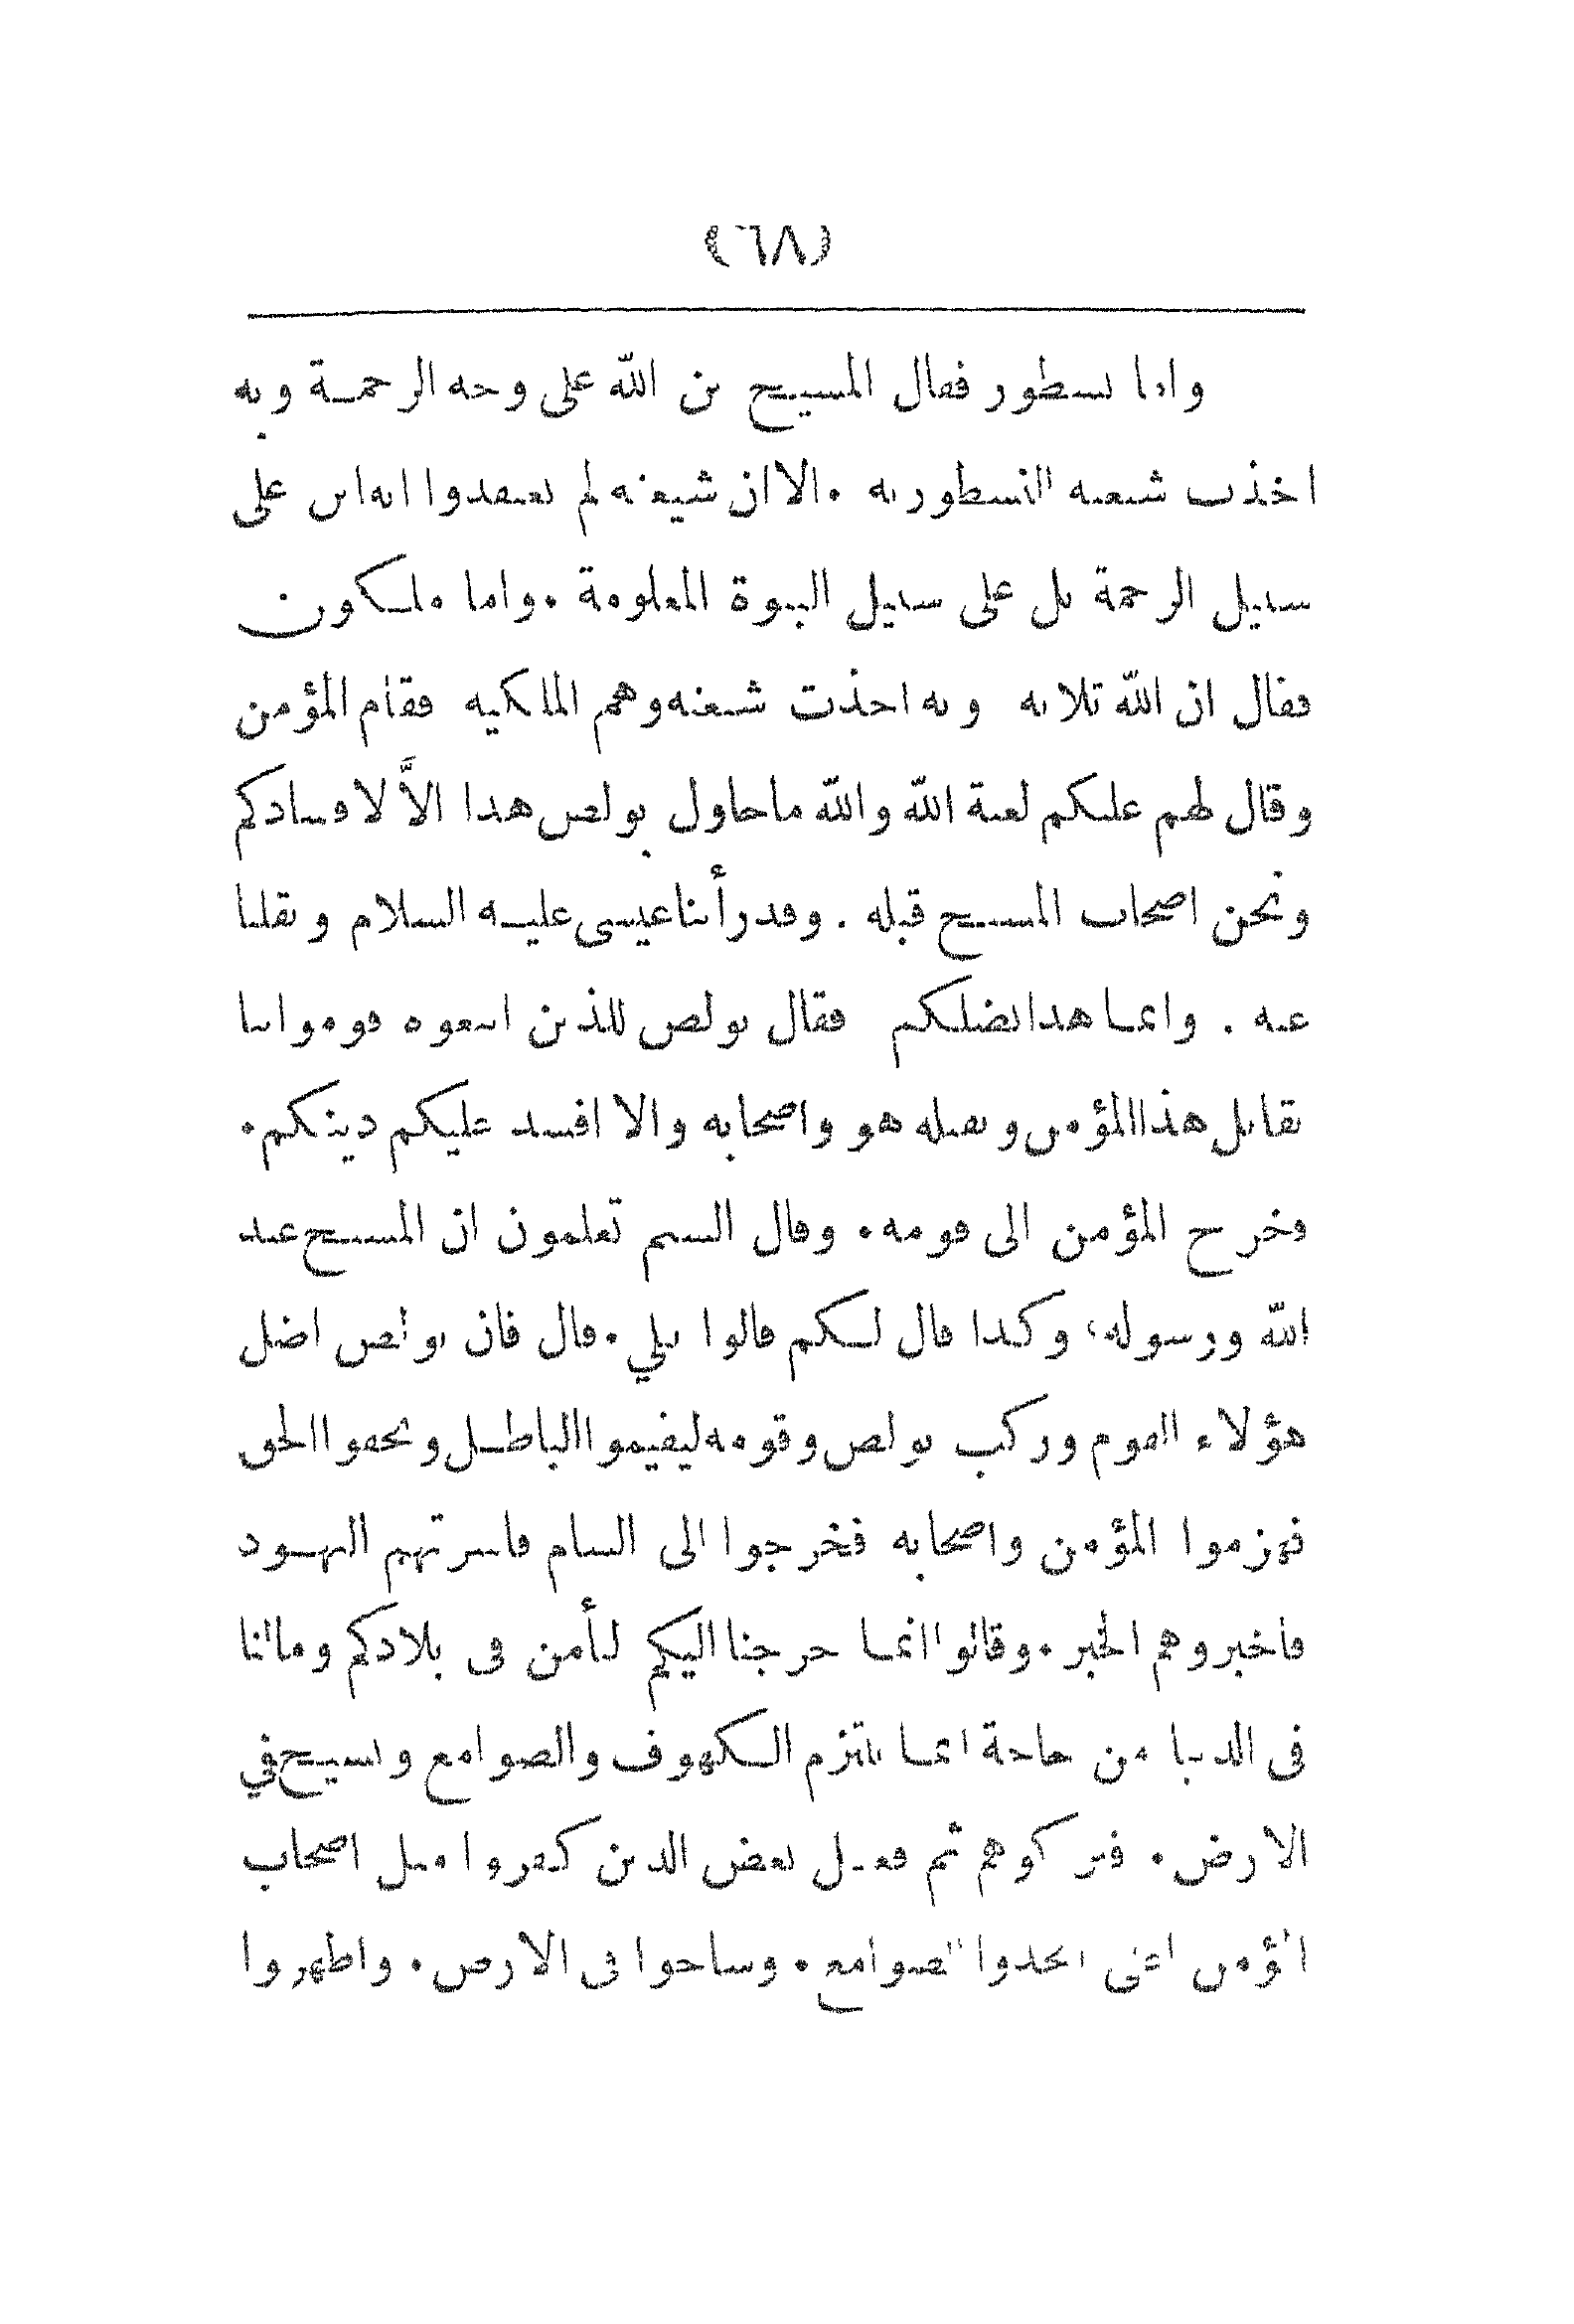 (٦٨)
واما نسطور فقال المسيح بن الله على وجه الرحمة وبه
اخذت شيعته النسطوريه . الا ان شيعته لم تعتقدوا انه ابن على
سبيل الرحمة بل على سبيل البنوة المعلومة . واما ملكون
فقال ان الله ثلاثه وبه اخذت شيعته وهم المالكيه فقام المؤمن
وقال لهم عليكم لعنة الله والله ما حاول بولص هذا الاَّ لافسادكم
ونحن اصحاب المسيح قبله . وقد رأينا عيسى عليه السلام ونقلنا
عنه . وانما هذا يضلكم فقال بولص للذين اتبعوه قوموا بنا
نقاتل هذا المؤمن ونقتله هو واصحابه والا افسد عليكم دينكم .
فخرج المؤمن الى قومه . وقال الستم تعلمون ان المسيح عبد
الله ورسوله، وكذا قال لكم قالوا بلي . قال فان بولص اضل
هؤلاء القوم وركب بولص وقومه ليقيموا الباطل ويحقوا الحق
فهزموا المؤمن واصحابه فخرجوا الى الشام فاسرتهم اليهود
فأخبروهم الخبر . وقالوا انما خرجنا اليكم لنأمن فى بلادكم ومالنا
فى الدنيا من حاجة انما نلتزم الكهوف والصوامع ونسيح في
الارض . فتركوهم ثم فعل بعض الذين كفروا مثل اصحاب
المؤمن اعنى اتخذوا الصوامع . وساحوا فى الارض . واظهروا